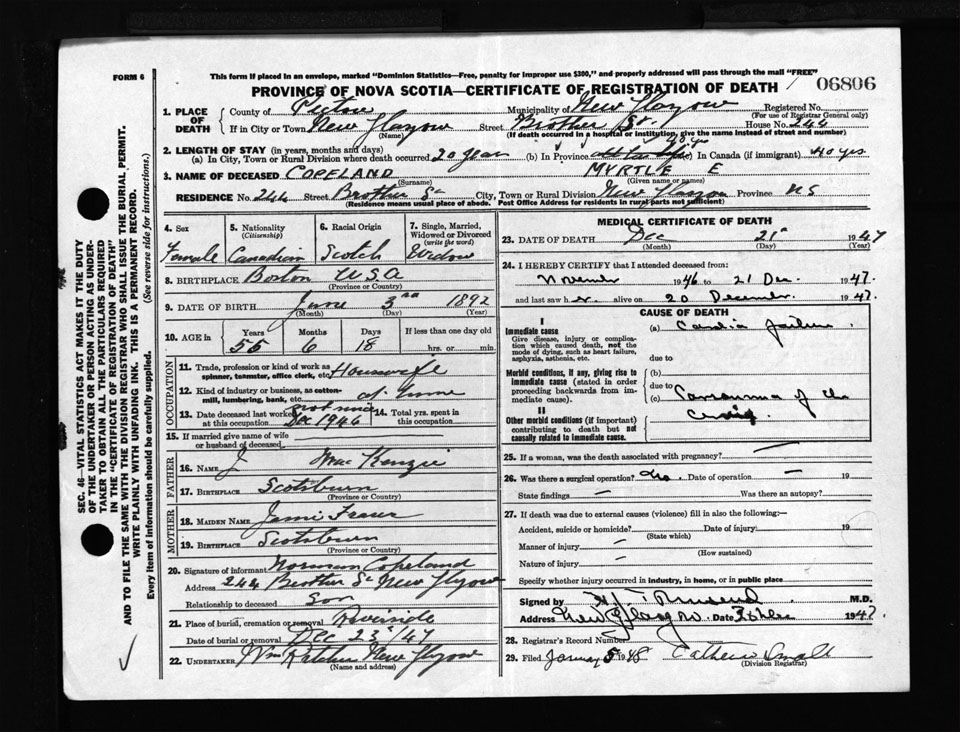 FORM 6
This form if placed in an envelope, marked "Dominion Statistics—Free, penalty for improper use $300," and properly addressed will pass through the mail "FREE"
PROVINCE OF NOVA SCOTIA—CERTIFICATE OF REGISTRATION OF DEATH
06806
1. PLACE OF DEATH
County of Pictou Municipality of New Glasgow Registered No.
(For use of Registrar General only)
If in City or Town New Glasgow Street Brother St. House No. 244
(Name) (If death occurred in a hospital or institution, give the name instead of street and number)
2. LENGTH OF STAY (in years, months and days)
(a) In City, Town or Rural Division where death occurred 20 years (b) In Province (c) In Canada (if immigrant) 40 yrs
3. NAME OF DECEASED COPELAND MYRTLE E
(Surname) (Given name or names)
RESIDENCE No. 244 Street Brother St City, Town or Rural Division New Glasgow Province N S
(Residence means usual place of abode. Post Office Address for residents in rural parts not sufficient)
4. Sex
Female
5. Nationality
(Citizenship)
Canadian
6. Racial Origin
Scotch
7. Single, Married, Widowed or Divorced
(write the word)
Widow
8. BIRTHPLACE Boston U.S.A
(Province or Country)
9. DATE OF BIRTH June 3rd 1892
(Month) (Day) (Year)
10. AGE in
Years Months Days If less than one day old
55 6 18 hrs. or min.
OCCUPATION
11. Trade, profession or kind of work as spinner, teamster, office clerk, etc. Housewife
12. Kind of industry or business, as cotton-mill, lumbering, bank, etc. at home
13. Date deceased last worked at this occupation Dec 1946
14. Total yrs. spent in this occupation
15. If married give name of wife or husband of deceased
FATHER
16. NAME J MacKenzie
17. BIRTHPLACE Scotsburn
(Province or Country)
MOTHER
18. MAIDEN NAME Fraser
19. BIRTHPLACE Scotsburn
(Province or Country)
20. Signature of informant Norman Copeland
Address 244 Brother St New Glasgow
Relationship to deceased Son
21. Place of burial, cremation or removal Riverside
Date of burial or removal Dec 23rd/47
22. UNDERTAKER New Glasgow
(Name and address)
MEDICAL CERTIFICATE OF DEATH
23. DATE OF DEATH Dec 21st 1947
(Month) (Day) (Year)
24. I HEREBY CERTIFY that I attended deceased from:
November 1946 to 21 Dec. 1947.
and last saw h er alive on 20 December. 1947.
CAUSE OF DEATH
I
Immediate cause
Give disease, injury or complication which caused death, not the mode of dying, such as heart failure, asphyxia, asthenia, etc.
(a) Cardiac failure
due to
Morbid conditions, if any, giving rise to immediate cause (stated in order proceeding backwards from immediate cause).
(b)
due to
(c) Carcinoma of the Cervix.
II
Other morbid conditions (if important) contributing to death but not causally related to immediate cause.
25. If a woman, was the death associated with pregnancy? —
26. Was there a surgical operation? No. Date of operation — 19
State findings — Was there an autopsy?
27. If death was due to external causes (violence) fill in also the following:—
Accident, suicide or homicide? Date of injury 19
(State which)
Manner of injury —
(How sustained)
Nature of injury —
Specify whether injury occurred in industry, in home, or in public place
Signed by M.D.
Address New Glasgow Date 1947
28. Registrar's Record Number
29. Filed January 5 1948
(Division Registrar)
SEC. 46—VITAL STATISTICS ACT MAKES IT THE DUTY
OF THE UNDERTAKER OR PERSON ACTING AS UNDER-
TAKER TO OBTAIN ALL THE PARTICULARS REQUIRED
IN THE "CERTIFICATE OF REGISTRATION OF DEATH"
AND TO FILE THE SAME WITH THE DIVISION REGISTRAR WHO SHALL ISSUE THE BURIAL PERMIT.
WRITE PLAINLY WITH UNFADING INK. THIS IS A PERMANENT RECORD.
Every item of information should be carefully supplied. (See reverse side for instructions.)